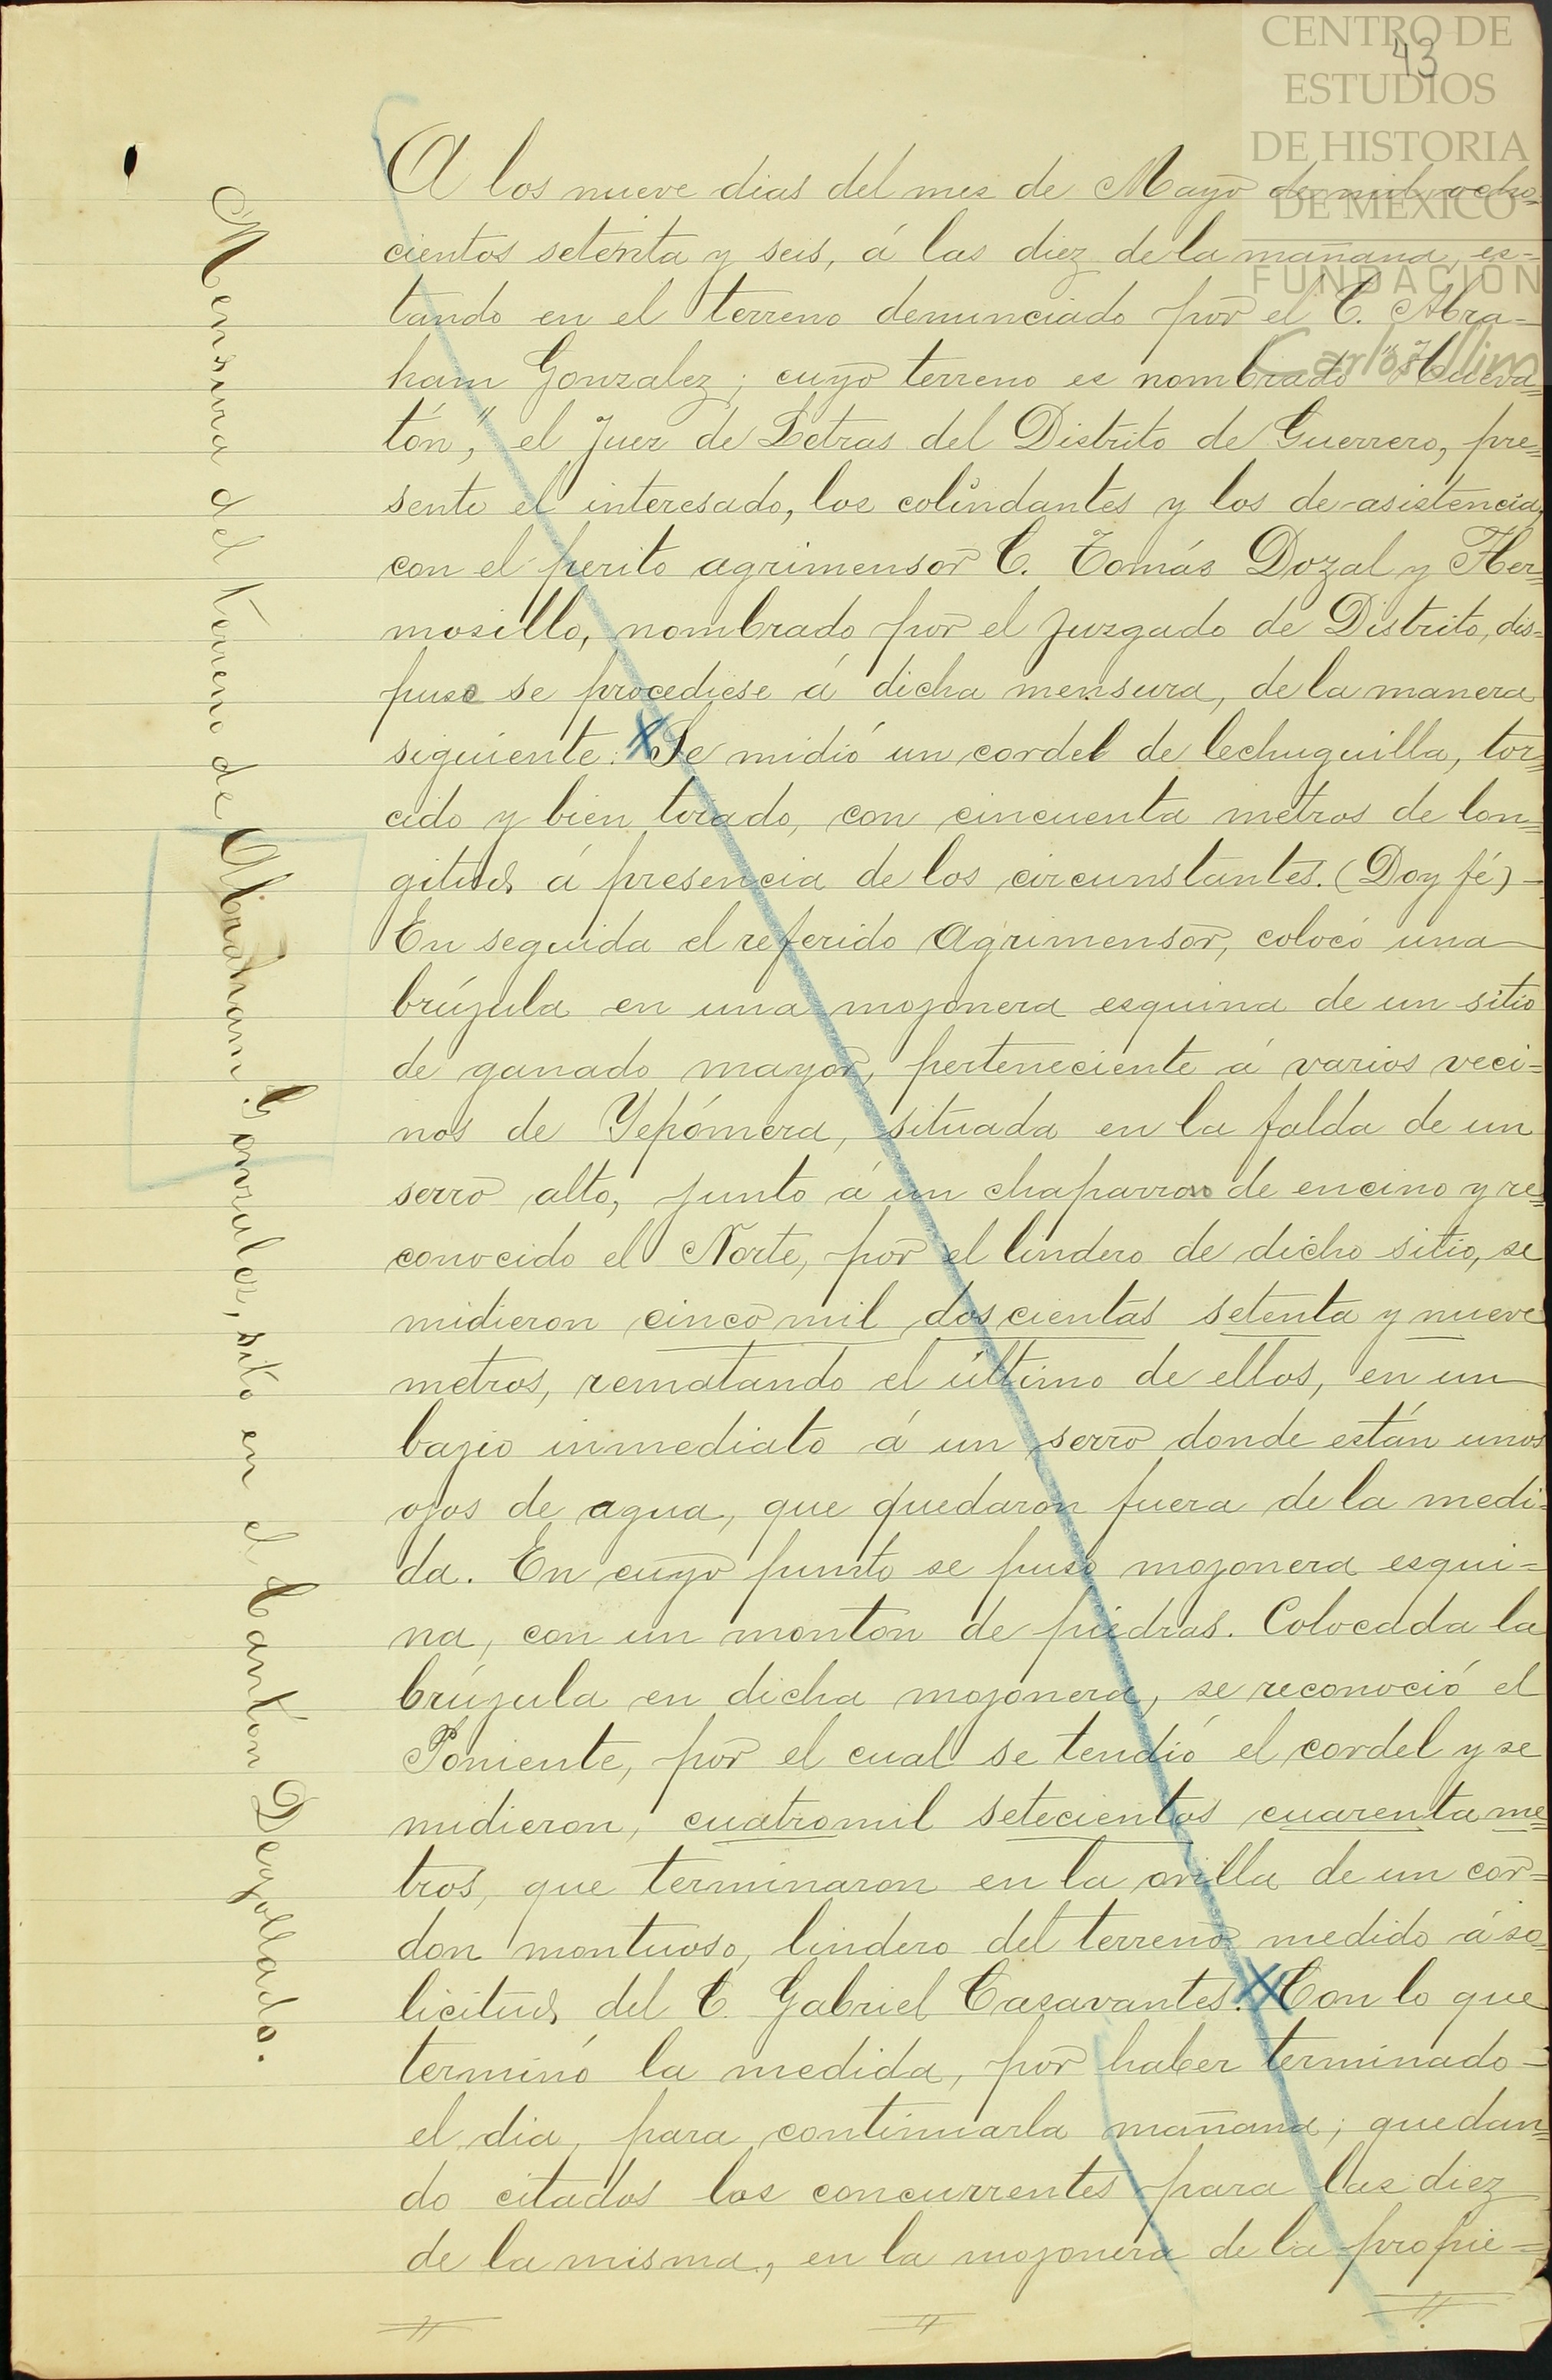 CENTRO DE
ESTUDIOS
DE HISTORIA
DE MEXICO
FUNDACIÓN
Carlos Slim
43
A los nueve dias del mes de Mayo de mil ocho-
cientos setenta y seis, á las diez de la mañana, es-
tando en el terreno denunciado por el C. Abra-
ham Gonzalez; cuyo terreno es nombrado "Cueva-
tón," el Juez de Letras del Distrito de Guerrero, pre-
sente el interesado, los colindantes y los de asistencia,
con el perito agrimensor C. Tomás Dozal y Her-
mosillo, nombrado por el Juzgado de Distrito, dis-
puse se procediese á dicha mensura, de la manera
siguiente: Se midió un cordel de lechuguilla, tor-
cido y bien tirado, con cincuenta metros de lon-
gitud, á presencia de los circunstantes. (Doy fé) -
En seguida el referido agrimensor, colocó una
brújula en una mojonera esquina de un sitio
de ganado mayor, perteneciente á varios veci-
nos de Yepómera, situada en la falda de un
serro alto, junto á un chaparro de encino y re-
conocido el Norte, por el lindero de dicho sitio, se
midieron cinco mil doscientas setenta y nueve
metros, rematando el último de ellos, en un
bajio inmediato á un serro donde están unos
ojos de agua, que quedaron fuera de la medi-
da. En cuyo punto se puso mojonera esqui-
na, con un monton de piedras. Colocada la
brújula en dicha mojonera, se reconoció el
Poniente, por el cual se tendió el cordel y se
midieron, cuatro mil setecientos cuarenta me-
tros, que terminaron en la orilla de un cor-
don montuoso, lindero del terreno medido á so-
licitud, del C. Gabriel Casavantes. Con lo que
terminó la medida, por haber terminado -
el dia, para continuarla mañana; quedan-
do citados los concurrentes para las diez
de la misma, en la mojonera de la propie-
Mensura del terreno de Abraham Gonzalez, sito en el Canton Degollado.